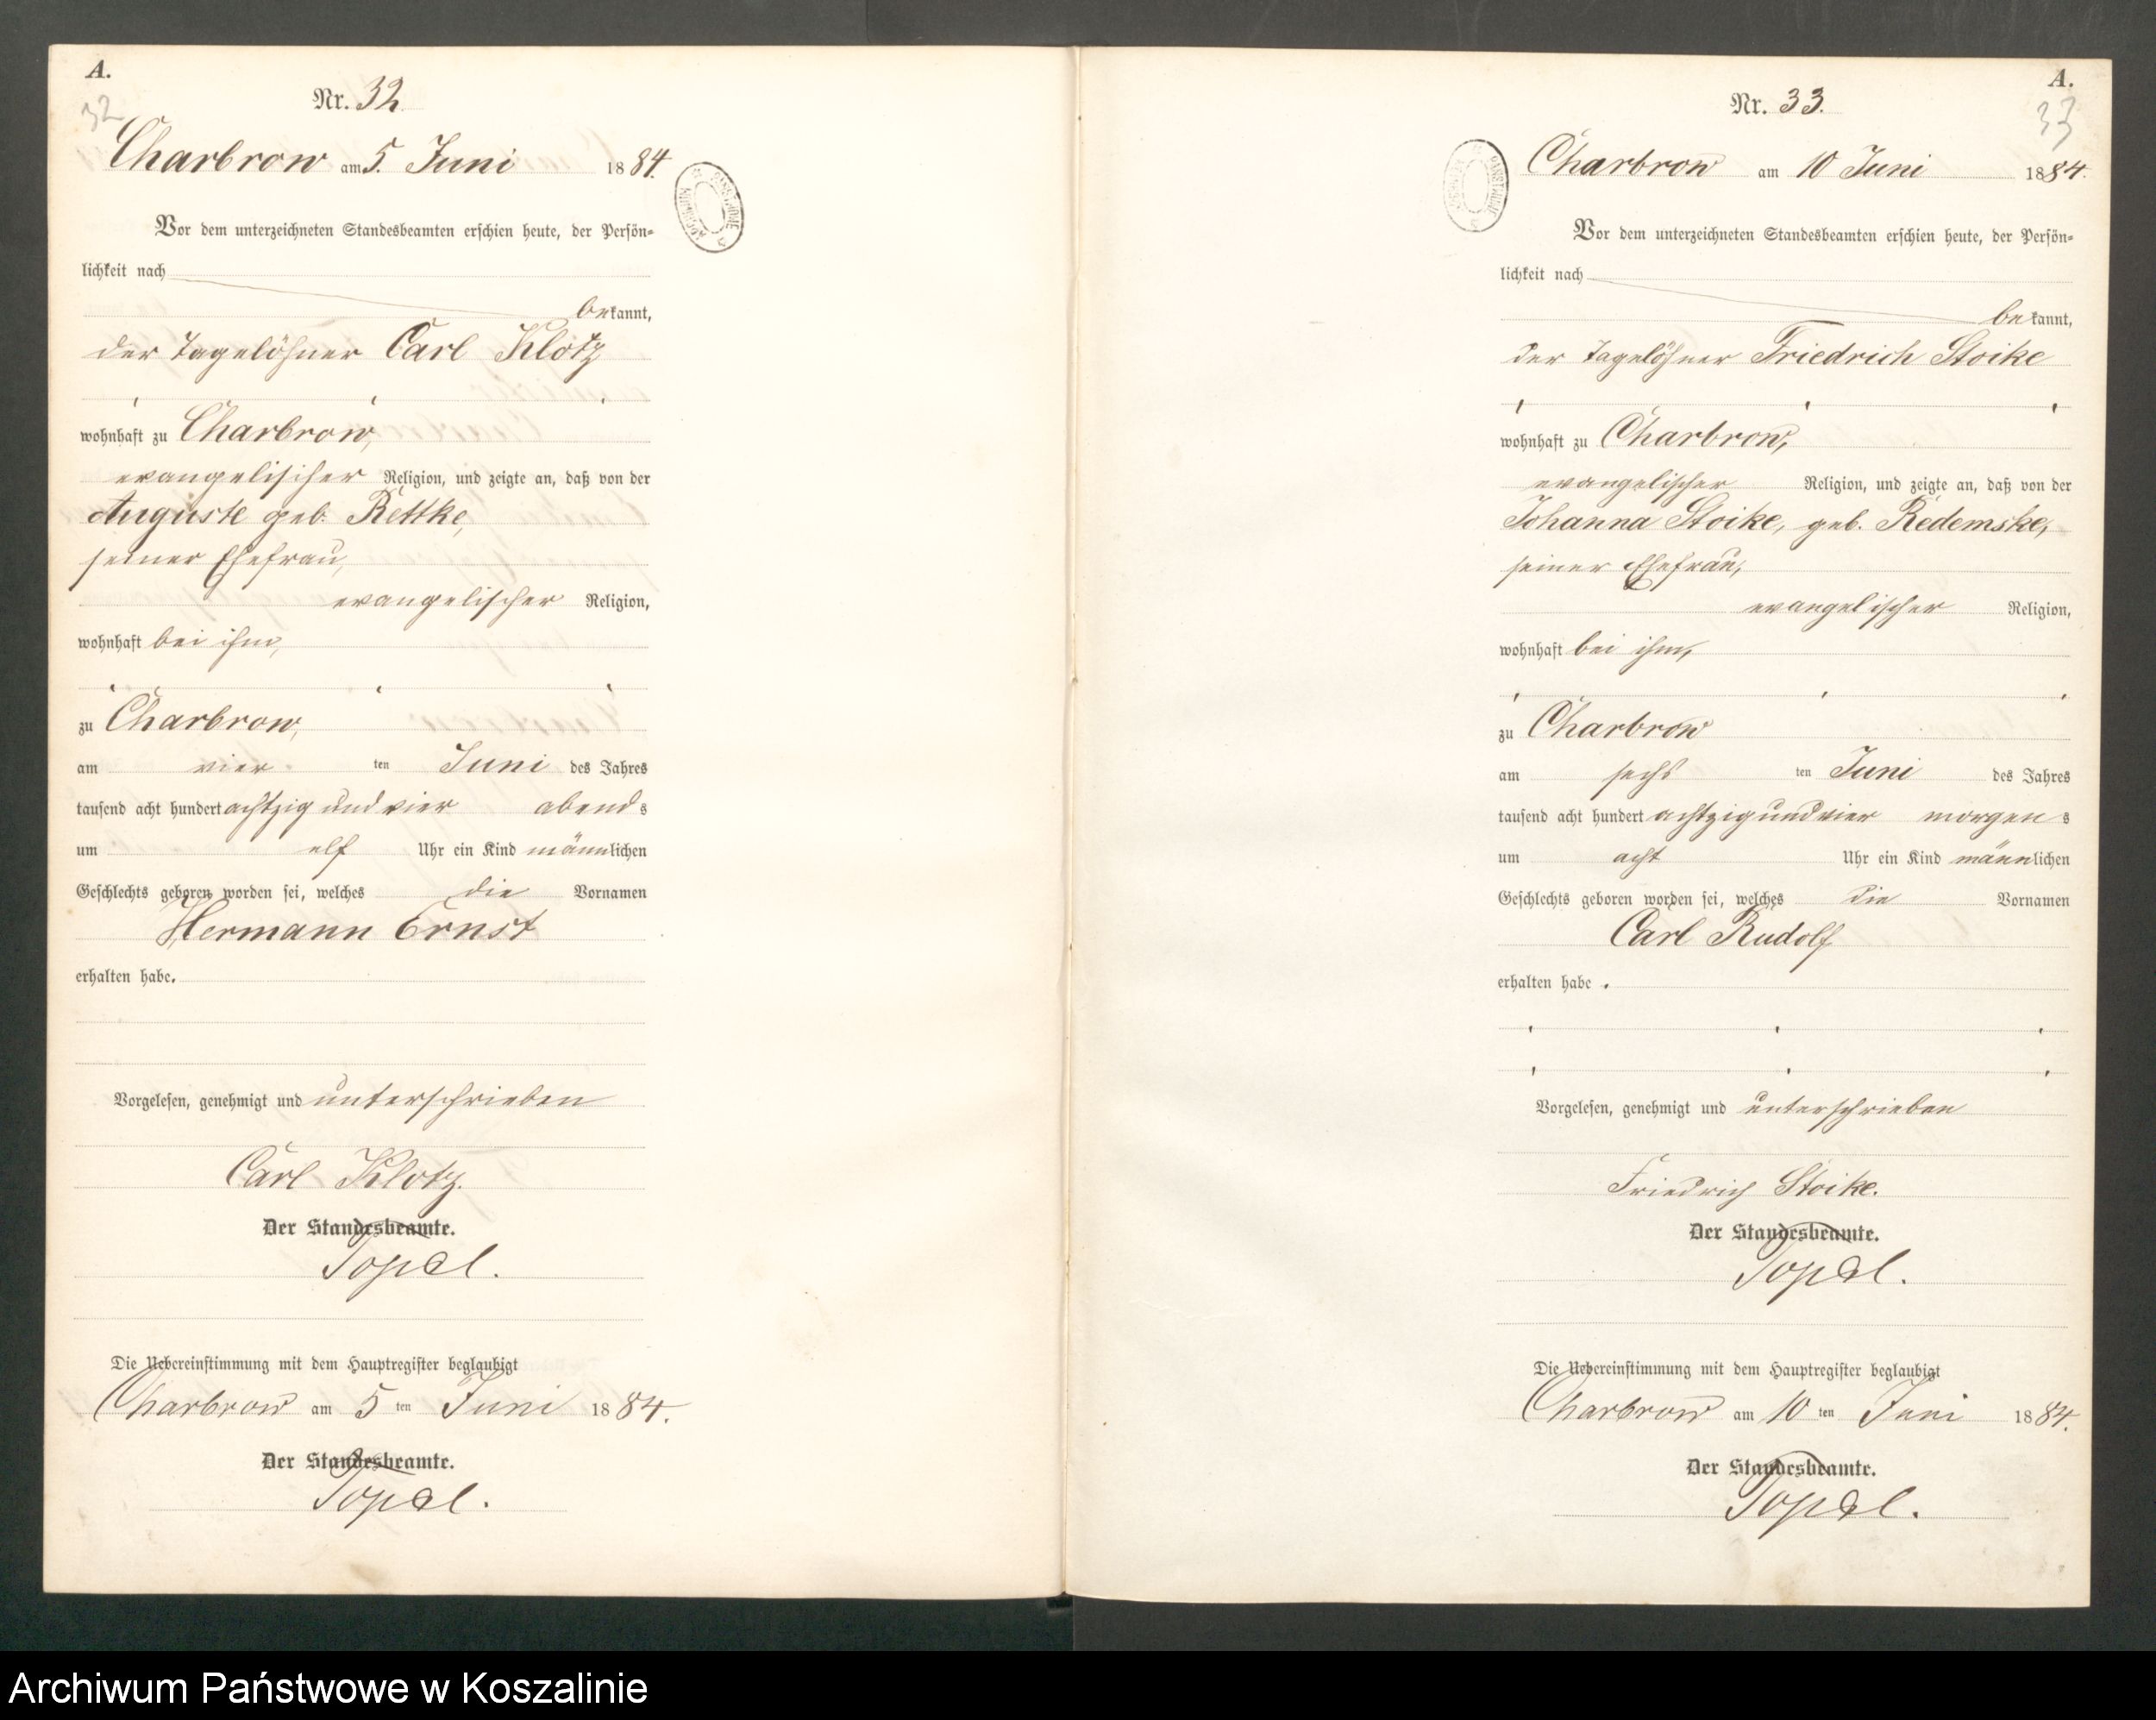 A.
32
Nr. 32.
Charbrow am 5. Juni 1884.
Vor dem unterzeichneten Standesbeamten erschien heute, der Persön-
lichkeit nach
bekannt,
der Tagelöhner Carl Klotz
wohnhaft zu Charbrow,
evangelischer Religion, und zeigte an, daß von der
Auguste geb. Rettke,
seiner Ehefrau,
evangelischer Religion,
wohnhaft bei ihm,
zu Charbrow,
am vier ten Juni des Jahres
tausend acht hundert achtzig und vier abends
um elf Uhr ein Kind männlichen
Geschlechts geboren worden sei, welches die Vornamen
Hermann Ernst
erhalten habe.
Vorgelesen, genehmigt und unterschrieben
Carl Klotz.
Der Standesbeamte.
Topel.
Die Uebereinstimmung mit dem Hauptregister beglaubigt
Charbrow am 5 ten Juni 1884.
Der Standesbeamte.
Topel.
A.
33
Nr. 33.
Charbrow am 10 Juni 1884.
Vor dem unterzeichneten Standesbeamten erschien heute, der Persön-
lichkeit nach
bekannt,
der Tagelöhner Friedrich Stoike
wohnhaft zu Charbrow,
evangelischer Religion, und zeigte an, daß von der
Johanna Stoike, geb. Redemske,
seiner Ehefrau,
evangelischer Religion,
wohnhaft bei ihm,
zu Charbrow
am sechs ten Juni des Jahres
tausend acht hundert achtzig und vier morgens
um acht Uhr ein Kind männlichen
Geschlechts geboren worden sei, welches die Vornamen
Carl Rudolf
erhalten habe .
Vorgelesen, genehmigt und unterschrieben
Friedrich Stoike.
Der Standesbeamte.
Topel.
Die Uebereinstimmung mit dem Hauptregister beglaubigt
Charbrow am 10 ten Juni 1884.
Der Standesbeamte.
Topel.
Archiwum Państwowe w Koszalinie